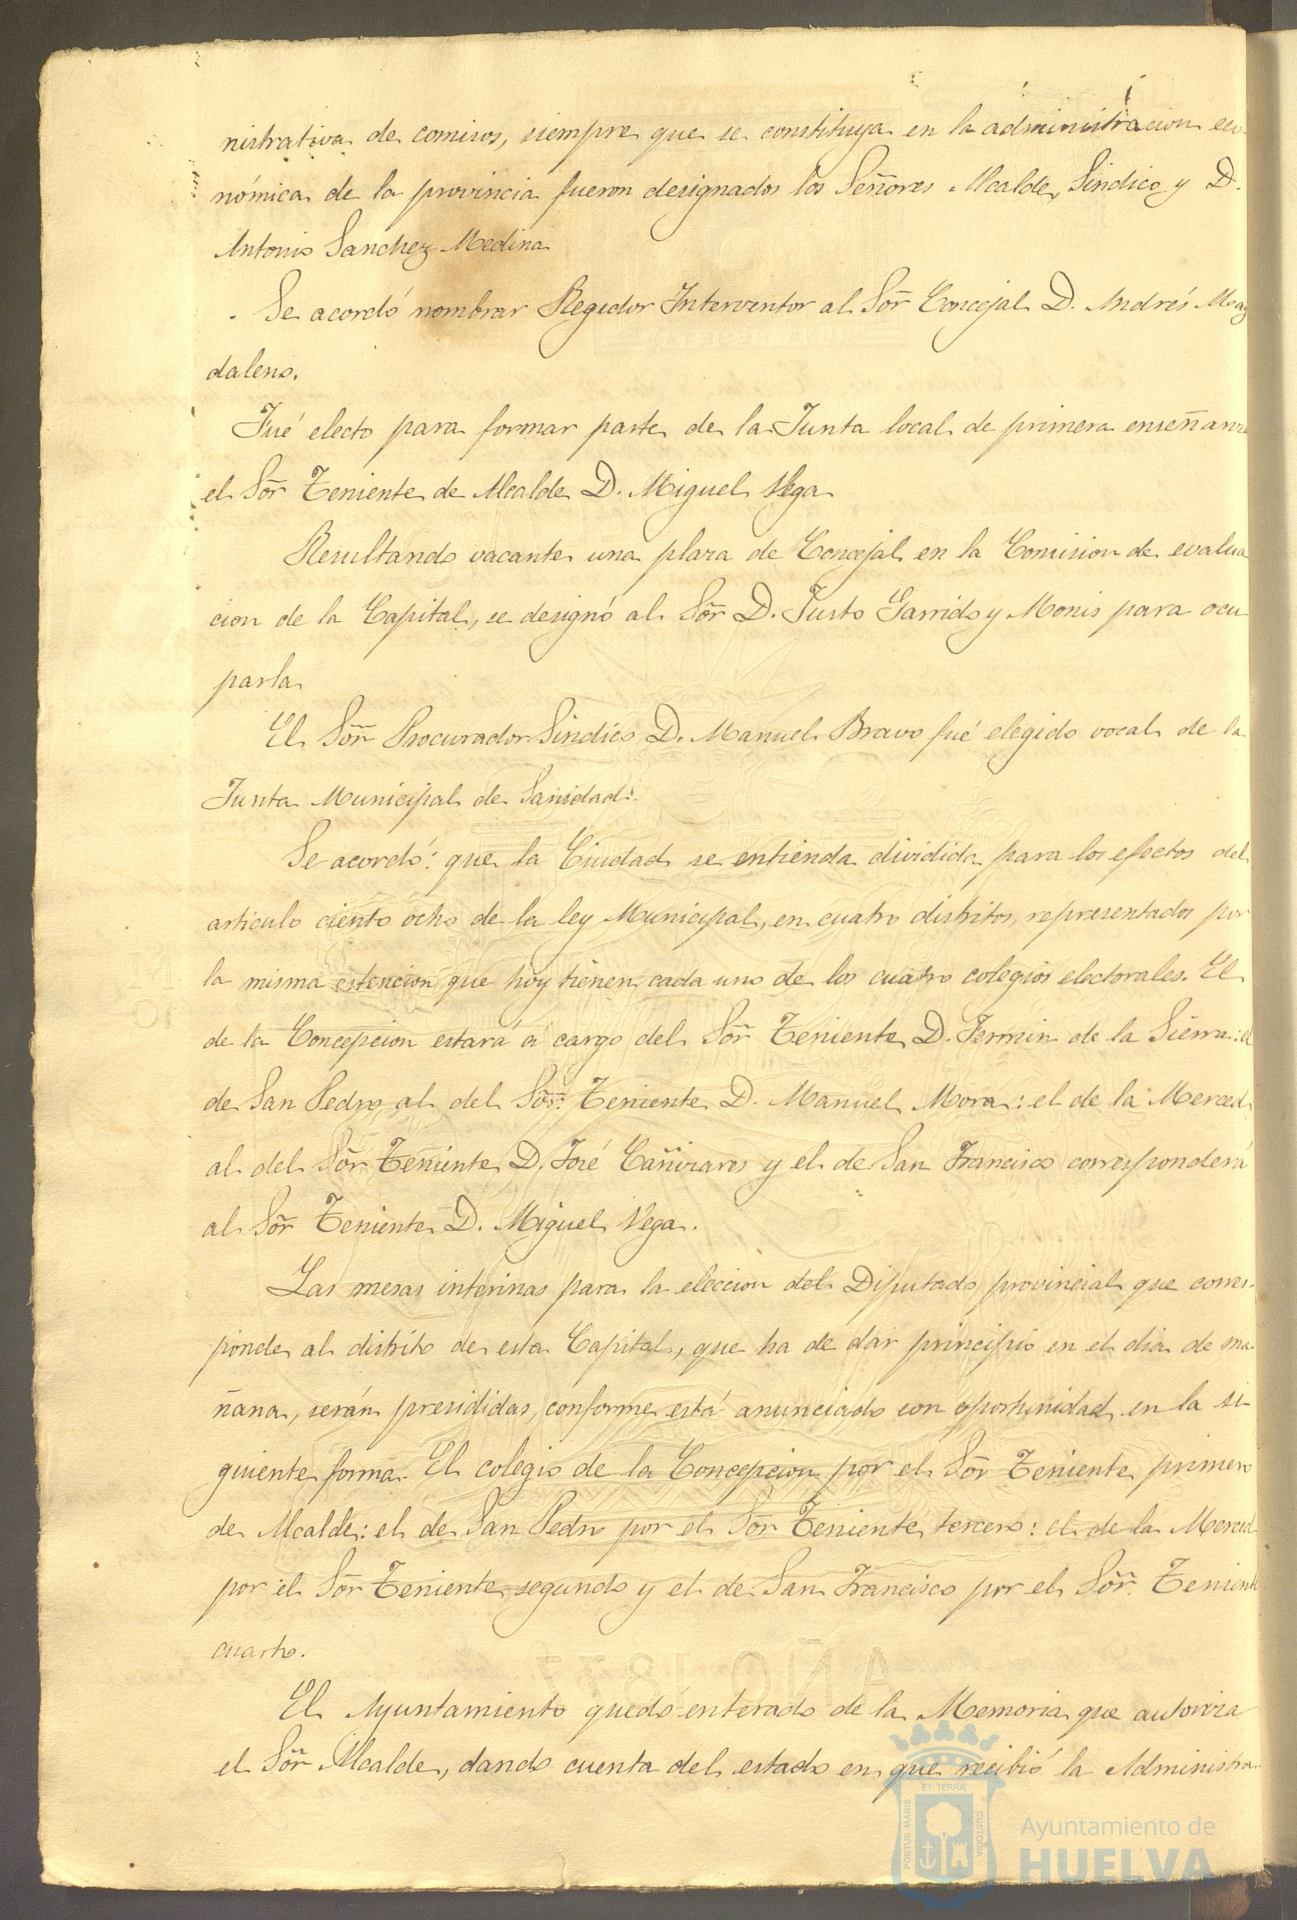 nistrativa de comisos, siempre que se constituya en la administracion eco-
nómica de la provincia fueron designados los Señores Alcalde, Sindico y D.
Antonio Sanchez Medina
Se acordó nombrar Regidor Interventor al Sõr Concejal D. Andrés Mag
daleno.
Fué electo para formar parte de la Junta local de primera enseñanza
el Sõr Teniente de Alcalde D. Miguel Vega
Resultando vacante una plaza de Concejal en la Comision de evalua
cion de la Capital, se designó al Sõr D. Justo Garrido y Monis para ocu
parla
El Sõr Procurador Sindico D. Manuel Bravo fué elegido vocal de la
Junta Municipal de Sanidad.
Se acordó: que la Ciudad se entienda dividida para los efectos del
articulo ciento ocho de la ley Municipal, en cuatro distritos, representados por
la misma estencion que hoy tienen cada uno de los cuatro colegios electorales. El
de la Concepcion estará á cargo del Sõr Teniente D. Fermin de la Sierra: el
de San Pedro al del Sõr. Teniente D. Manuel Mora: el de la Merced
al del Sõr Teniente D. José Cañizares y el de San Francisco corresponderá
al Sõr Teniente D. Miguel Vega.
Las mesas interinas para la eleccion del Diputado provincial que corres-
ponde al distrito de esta Capital, que ha de dar principio en el dia de ma
ñana, serán presididas, conforme está anunciado con oportunidad en la si
guiente forma. El colegio de la Concepcion por el Sõr Teniente primero
de Alcalde: el de San Pedro por el Sõr Teniente tercero: el de la Merced
por el Sõr Teniente segundo y el de San Francisco por el Sõr. Teniente
cuarto.
AÑO 1877
El Ayuntamiento quedó enterado de la Memoria que autoriza
el Sõr Alcalde, dando cuenta del estado en que recibió la Administra-
PORTUS MARIS ET TERRÆ CUSTODIA
Ayuntamiento de
HUELVA